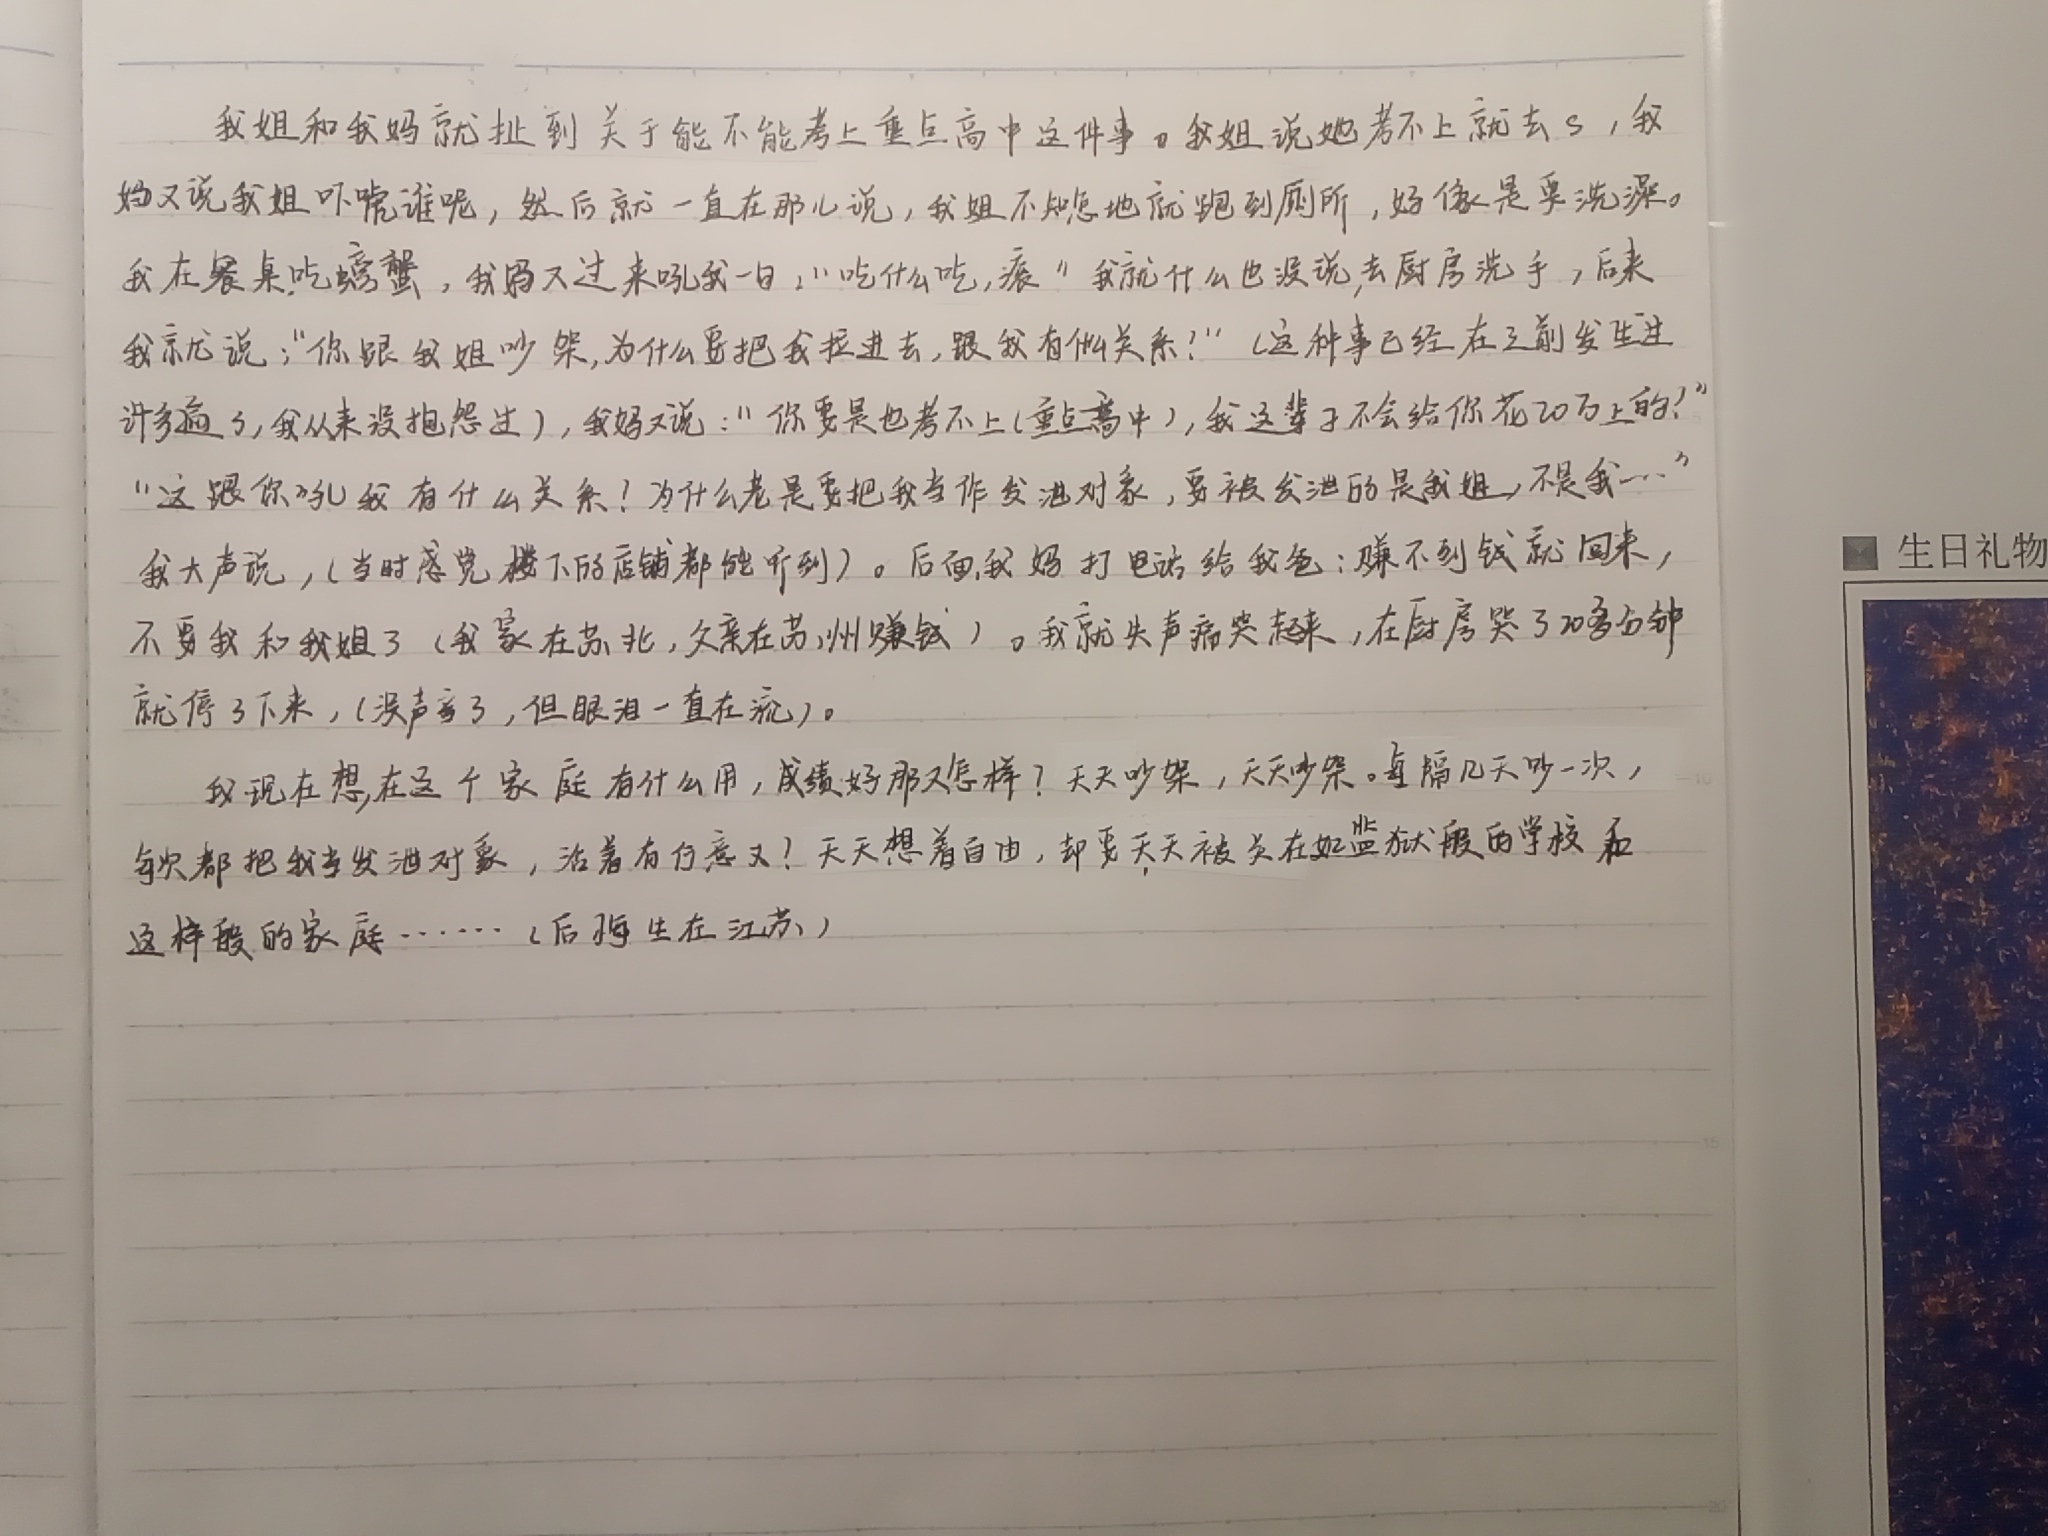 我姐和我妈就扯到关于能不能考上重点高中这件事。我姐说她考不上就去s，我
妈又说我姐吓唬谁呢，然后就一直在那儿说，我姐不知怎地就跑到厕所，好像是要洗澡。
我在餐桌吃螃蟹，我妈又过来吼我一句，"吃什么吃，滚"我就什么也没说，去厨房洗手，后来
我就说："你跟我姐吵架，为什么要把我拉进去，跟我有什么关系？"（这种事已经在之前发生过
许多遍了，我从来没抱怨过），我妈又说："你要是也考不上（重点高中），我这辈子不会给你花20万上的！"
"这跟你吼我有什么关系！为什么老是要把我当作发泄对象，要被发泄的是我姐，不是我……"
我大声说，（当时感觉楼下的店铺都能听到）。后面，我妈打电话给我爸：赚不到钱就回来，
不要我和我姐了（我家在苏北，父亲在苏州赚钱）。我就失声痛哭起来，在厨房哭了20多分钟
就停了下来，（没声音了，但眼泪一直在流）。
我现在想，在这个家庭有什么用，成绩好那又怎样？天天吵架，天天吵架。每隔几天吵一次，
每次都把我当发泄对象，活着有何意义？天天想着自由，却要天天被关在如监狱般的学校和
这样般的家庭……（后悔生在江苏）
生日礼物